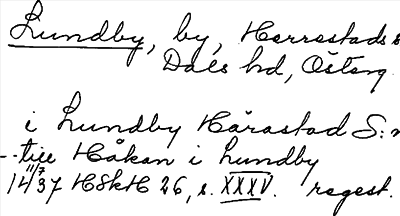 Lundby, by, Herrestads s
Dals hd, Österg.
i Lundby Hårastad S:n
--till Håkan i Lundby
14 11/7 37 HSkH 26, s. XXXV. regest.